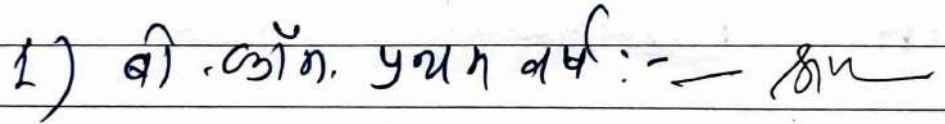 1) बी.कॉम. प्रथम वर्ष :-